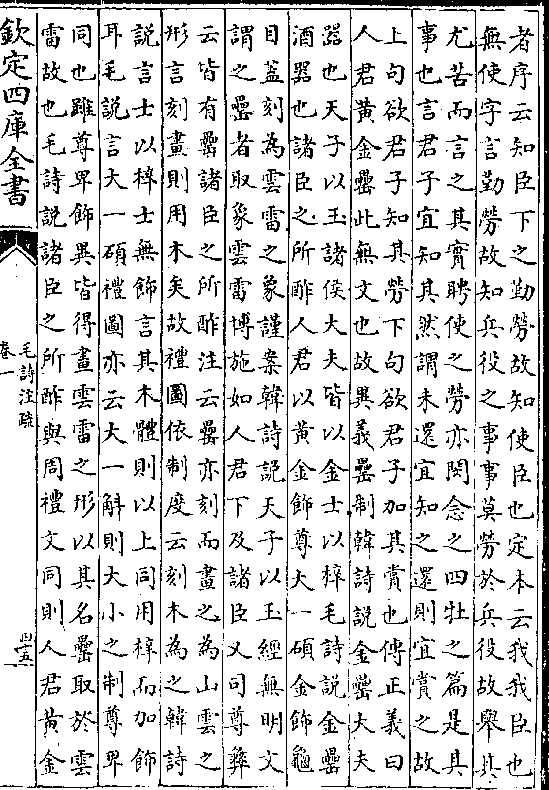 者序云知臣下之勤勞故知使臣也定本云我我臣也
無使字言勤勞故知兵役之事事莫勞於兵役故舉其
尤苦而言之其實聘使之勞亦閔念之四牡之篇是其
事也言君子宜知其然謂未還宜知之還則宜賞之故
上句欲君子知其勞下句欲君子加其賞也傳正義曰
人君黃金罍此無文也故異義罍制韓詩說金罍大夫
器也天子以玉諸侯大夫皆以金士以梓毛詩說金罍
酒器也諸臣之所酢人君以黃金飾尊大一碩金飾龜
目蓋刻為雲雷之象謹案韓詩說天子以玉經無明文
謂之罍者取象雲雷博施如人君下及諸臣又司尊彝
云皆有罍諸臣之所酢注云罍亦刻而畫之為山雲之
形言刻畫則用木矣故禮圖依制度云刻木為之韓詩
說言士以梓士無飾言其木體則以上同用梓而加飾
耳毛說言大一碩禮圖亦云大一斛則大小之制尊卑
同也雖尊卑飾異皆得畫雲雷之形以其名罍取於雲
雷故也毛詩說諸臣之所酢與周禮文同則人君黃金
欽定四庫全書
毛詩注疏
卷一
四十五